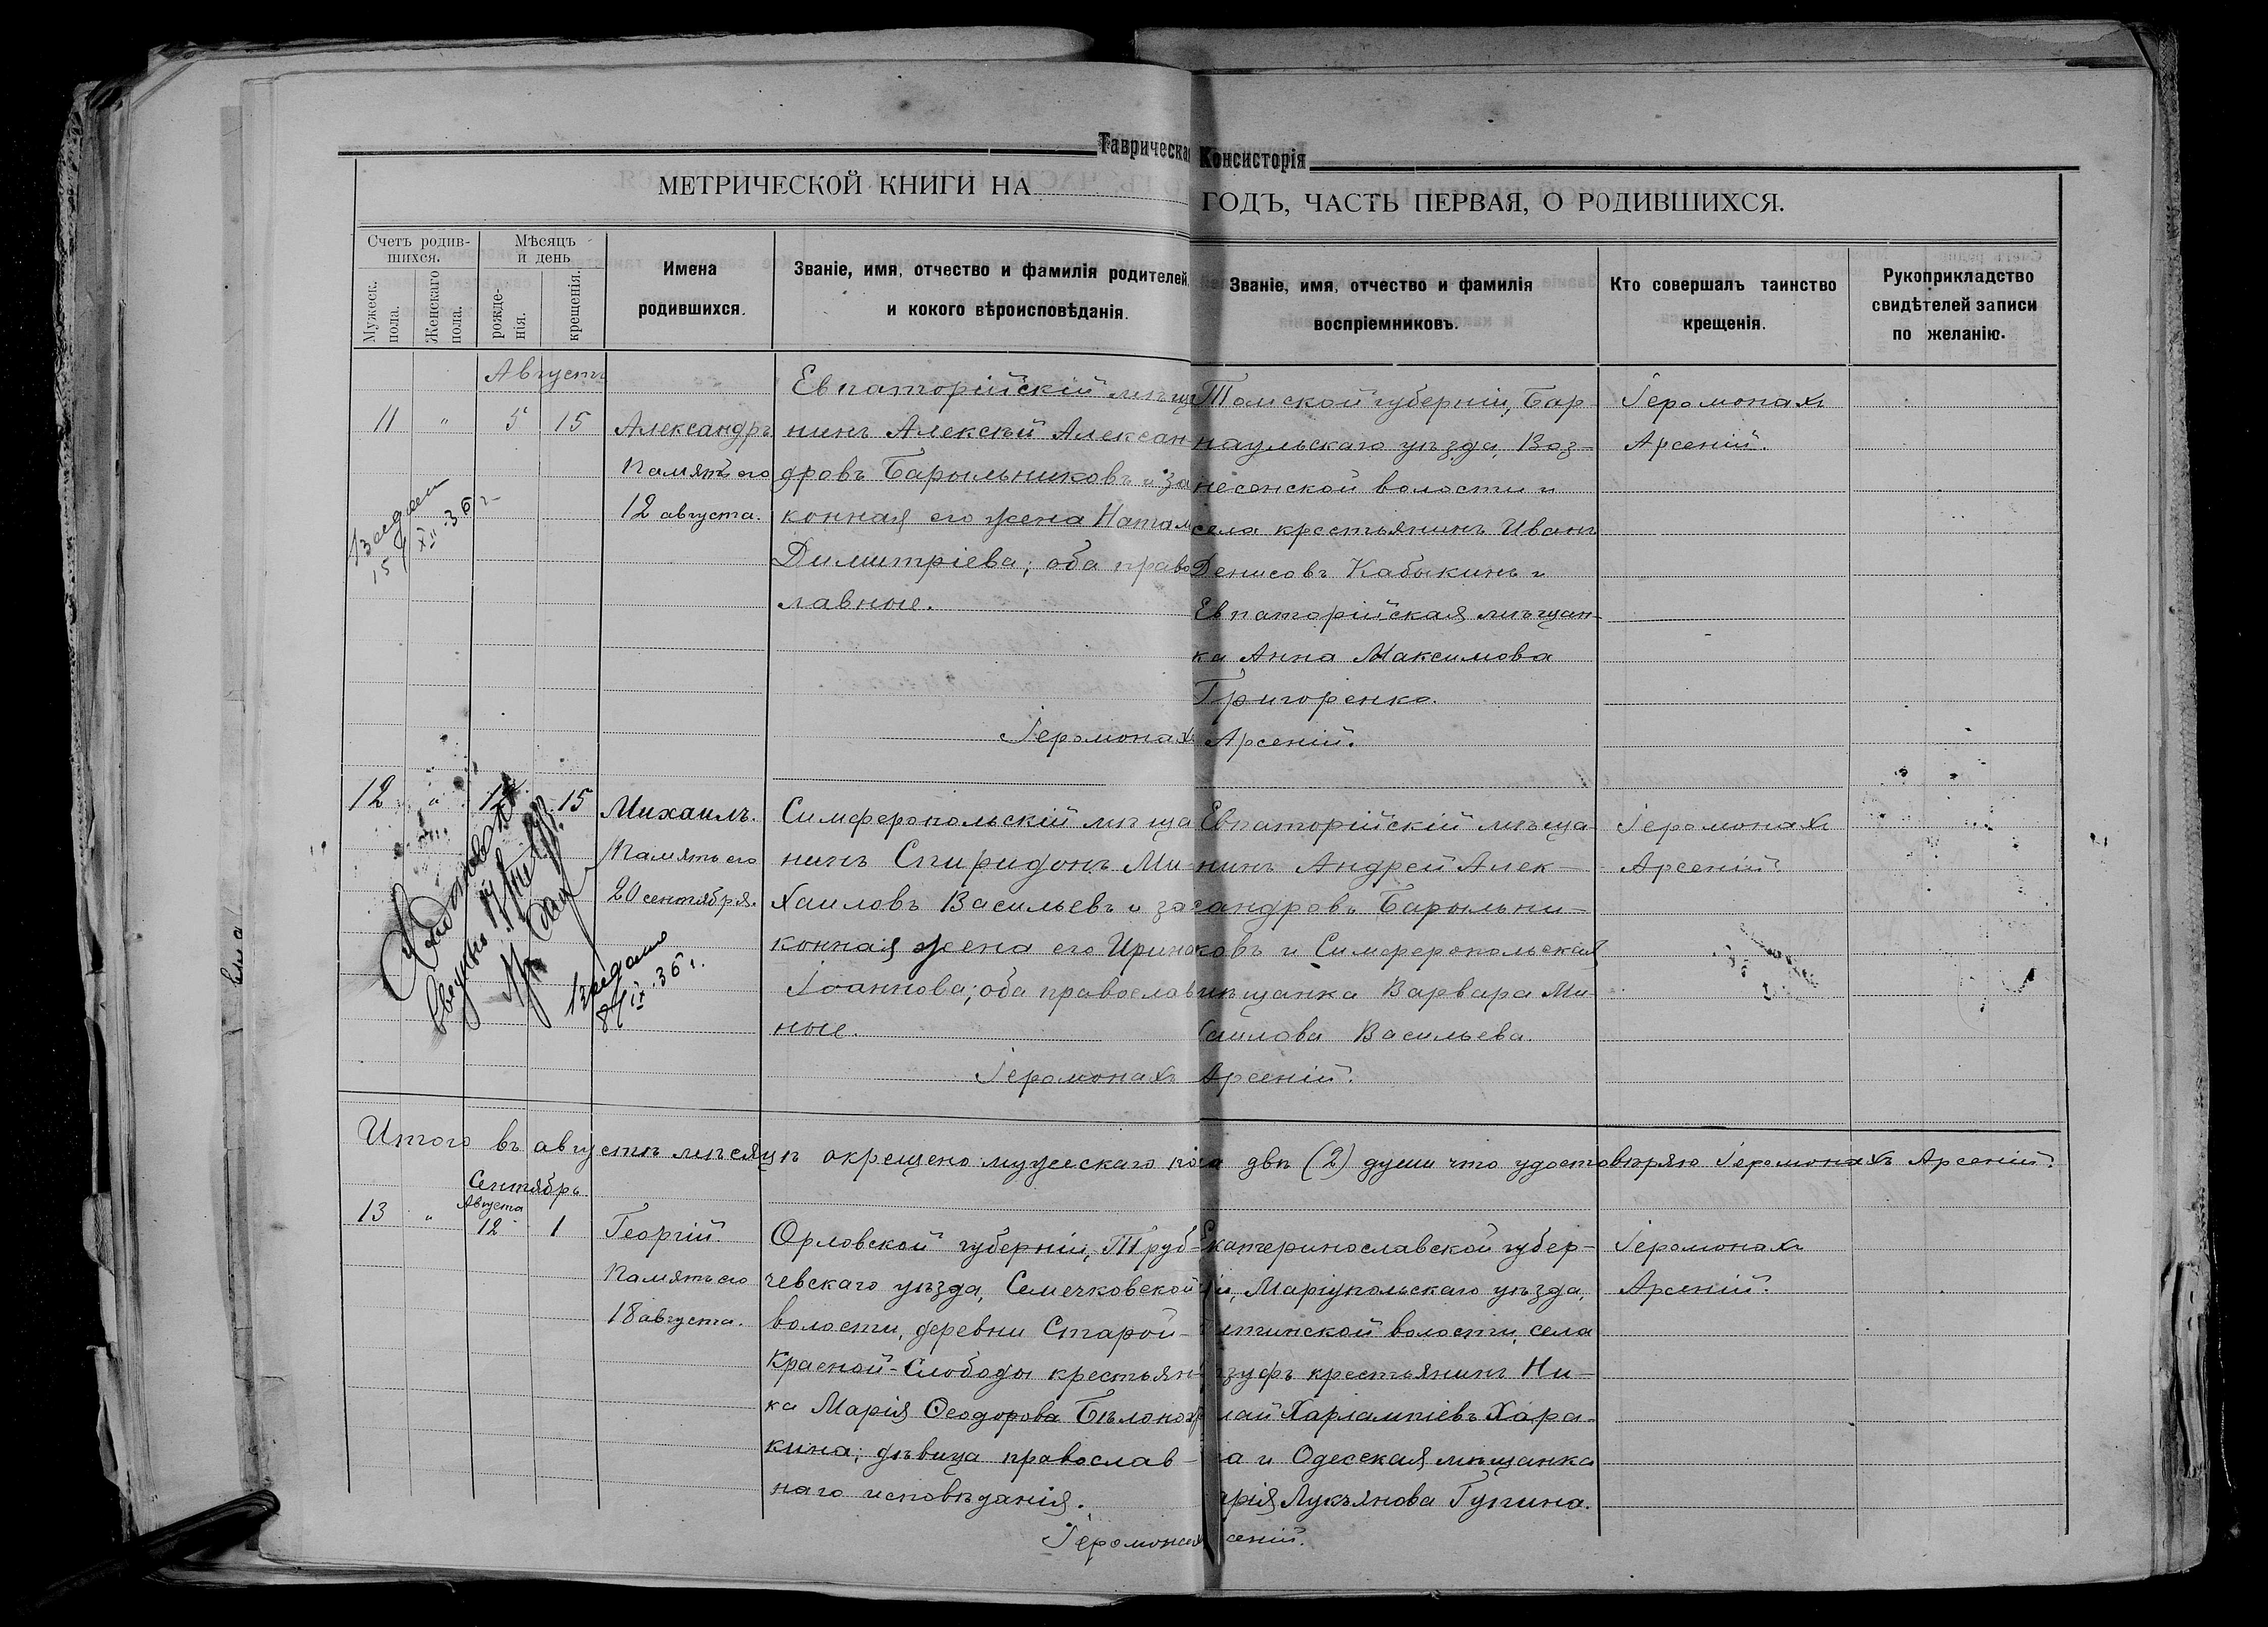 Таврическая Консисторія
МЕТРИЧЕСКОЙ КНИГИ НА ГОДЪ, ЧАСТЬ ПЕРВАЯ, О РОДИВШИХСЯ.
Счетъ родив-
шихся.
Мужеск.
пола.
Женскаго
пола.
Мѣсяцъ
и день
рожде-
нія.
крещенія.
Имена
родившихся.
Званіе, имя, отчество и фамилія родителей,
и кокого вѣроисповѣданія.
Званіе, имя, отчество и фамилія
воспріемниковъ.
Кто совершалъ таинство
крещенія.
Рукоприкладство
свидѣтелей записи
по желанію.
Августъ
11 " 5 15
Александръ
Память его
12 августа.
Евпаторійскій мѣща
нинъ Алексѣй Алексан
дровъ Барыльниковъ и за
конная его жена Натал
Димитріева; оба право
лавные.
Томской губерніи, Бар
наульскаго уѣзда, Воз-
несенской волости и
села крестьянинъ Иванъ
Денисовъ Кабыкинъ и
Евпаторійская мѣщан-
ка Анна Максимова
Григоренко.
Іеромонахъ
Арсеній.
Іеромонахъ Арсеній.
Выдан
15/XII-36 г.
12 " 12 15
Михаилъ.
Память его
20 сентября.
Симферопольскій мѣща
нинъ Спиридонъ Ми-
хаиловъ Васильевъ и за
конная жена его Ирина
Іоаннова; оба православ
ные.
Евпаторійскій мѣща
нинъ Андрей Алек-
сандровъ Барыльни-
ковъ и Симферопольская
мѣщанка Варвара Ми-
хаилова Васильева.
Іеромонахъ
Арсеній.
Іеромонахъ Арсеній.
Выдано
8/IX-36 г.
Итого въ августѣ мѣсяцѣ окрещено мужескаго пола двѣ (2) души что удостовѣряю Іеромонахъ Арсеній.
Сентябрь
Августа
13 " 12 1
Георгій.
Память его
18 августа.
Орловской губерніи, Труб-
чевскаго уѣзда, Семечковской
волости, деревни Старой-
Красной-Слободы крестьян-
ка Марія Ѳеодорова Бѣлоно
кина; дѣвица православ-
наго исповѣданія.
Екатеринославской губер-
іи, Маріупольскаго уѣзда,
тинской волости, села
зуфъ крестьянинъ Ни-
лай Харлампіевъ Хара-
а и Одесская мѣщанка
арія Лукьянова Гупина.
Іеромонахъ
Арсеній.
Іеромонахъ сеній.